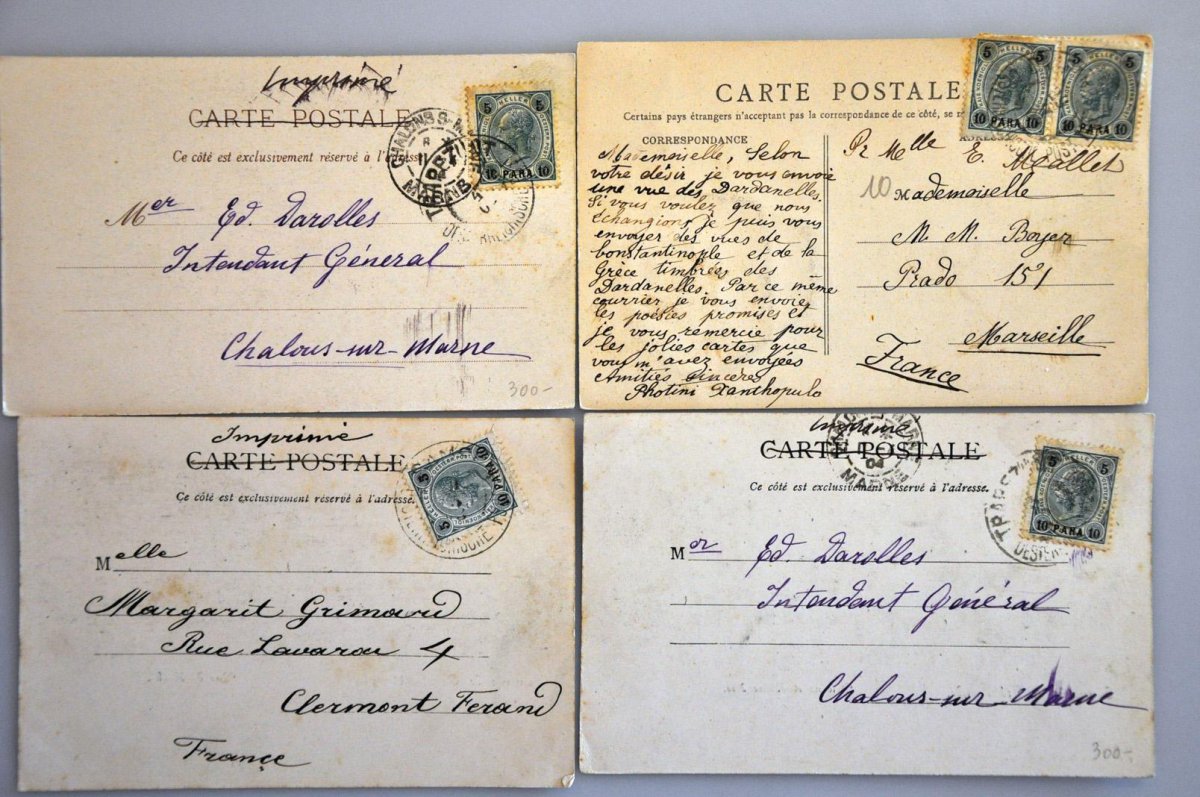 Imprimé
CARTE POSTALE
Ce côté est exclusivement réservé à l'adresse
5 HELLER 5
10 PARA 10
CHALONS S-M
MARNE
Mer Ed. Darolles
Intendant Général
Chalous-sur-Marne
300-
CARTE POSTALE
Certains pays étrangers n'acceptant pas la correspondance de ce côté, se
CORRESPONDANCE
Mademoiselle, Selon
votre désir je vous envoie
une vue des Dardanelles.
Si vous voulez que nous
échangions je puis vous
envoyer des vues de
Constantinople et de la
Grèce timbrées des
Dardanelles. Par ce même
courrier je vous envoie
les poésies promises et
je vous remercie pour
les jolies cartes que
vous m'avez envoyées
Amitiés Sincères
Photini Xanthopulo
5 HELLER 5
10 PARA 10
5 HELLER 5
10 PARA 10
Pr Melle E. Meallet
10
Mademoiselle
M. M. Boyer
Prado 151
Marseille
France
Imprimé
CARTE POSTALE
Ce côté est exclusivement réservé à l'adresse.
5 HELLER 5
10 PARA 10
Melle
Margarit Grimard
Rue Lavarou 4
Clermont Ferand
France
Imprimé
CARTE POSTALE
Ce côté est exclusivement réservé à l'adresse.
MARNE
04
5 HELLER 5
10 PARA 10
Mer Ed. Darolles
Intendant Général
Chalous-sur Marne
300-